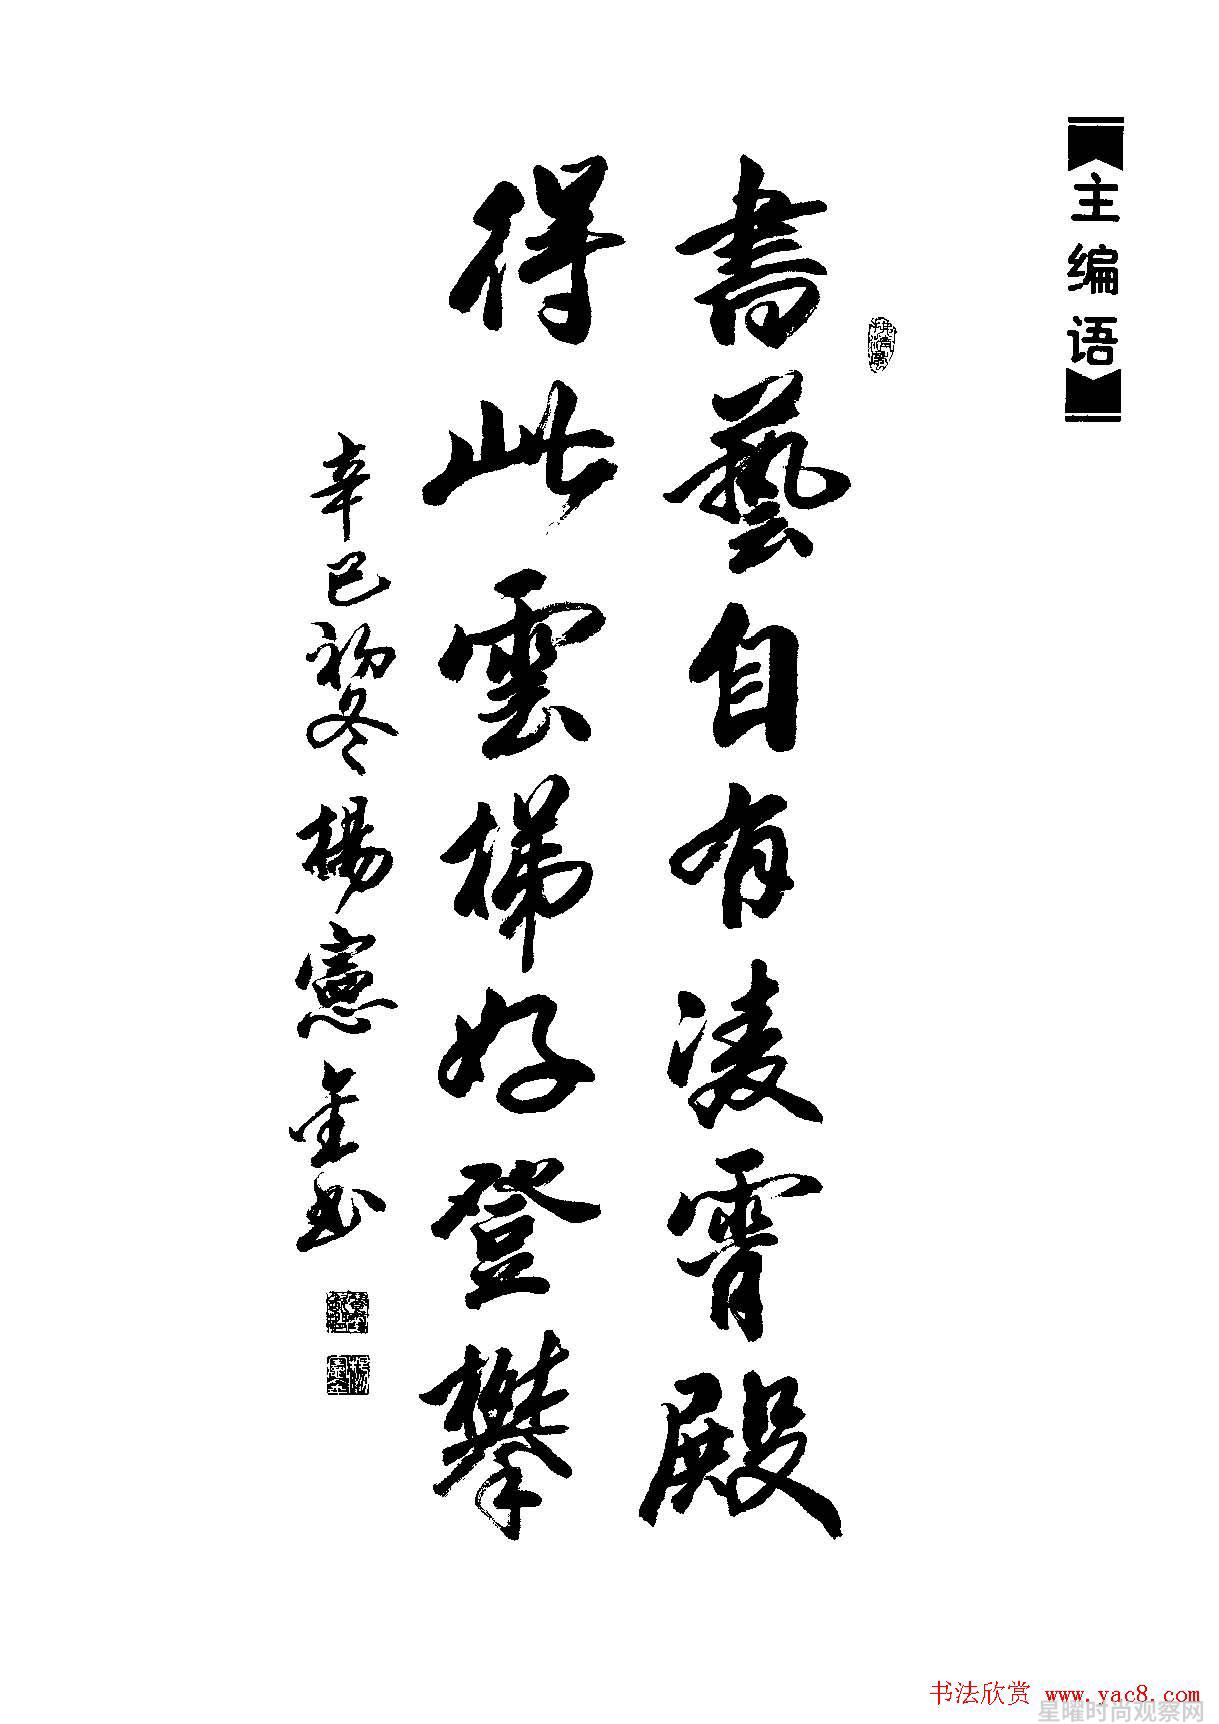 主编语
書藝自有凌霄殿
得此雲梯好登攀
辛巳初冬楊憲金书
书法欣赏 www.yac8.com
星曜时尚观察网